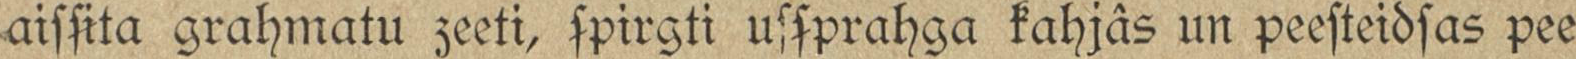 aiſſita grahmatu zeeti, ſpirgti uſſprahga kahjâs un peeſteidſas pee